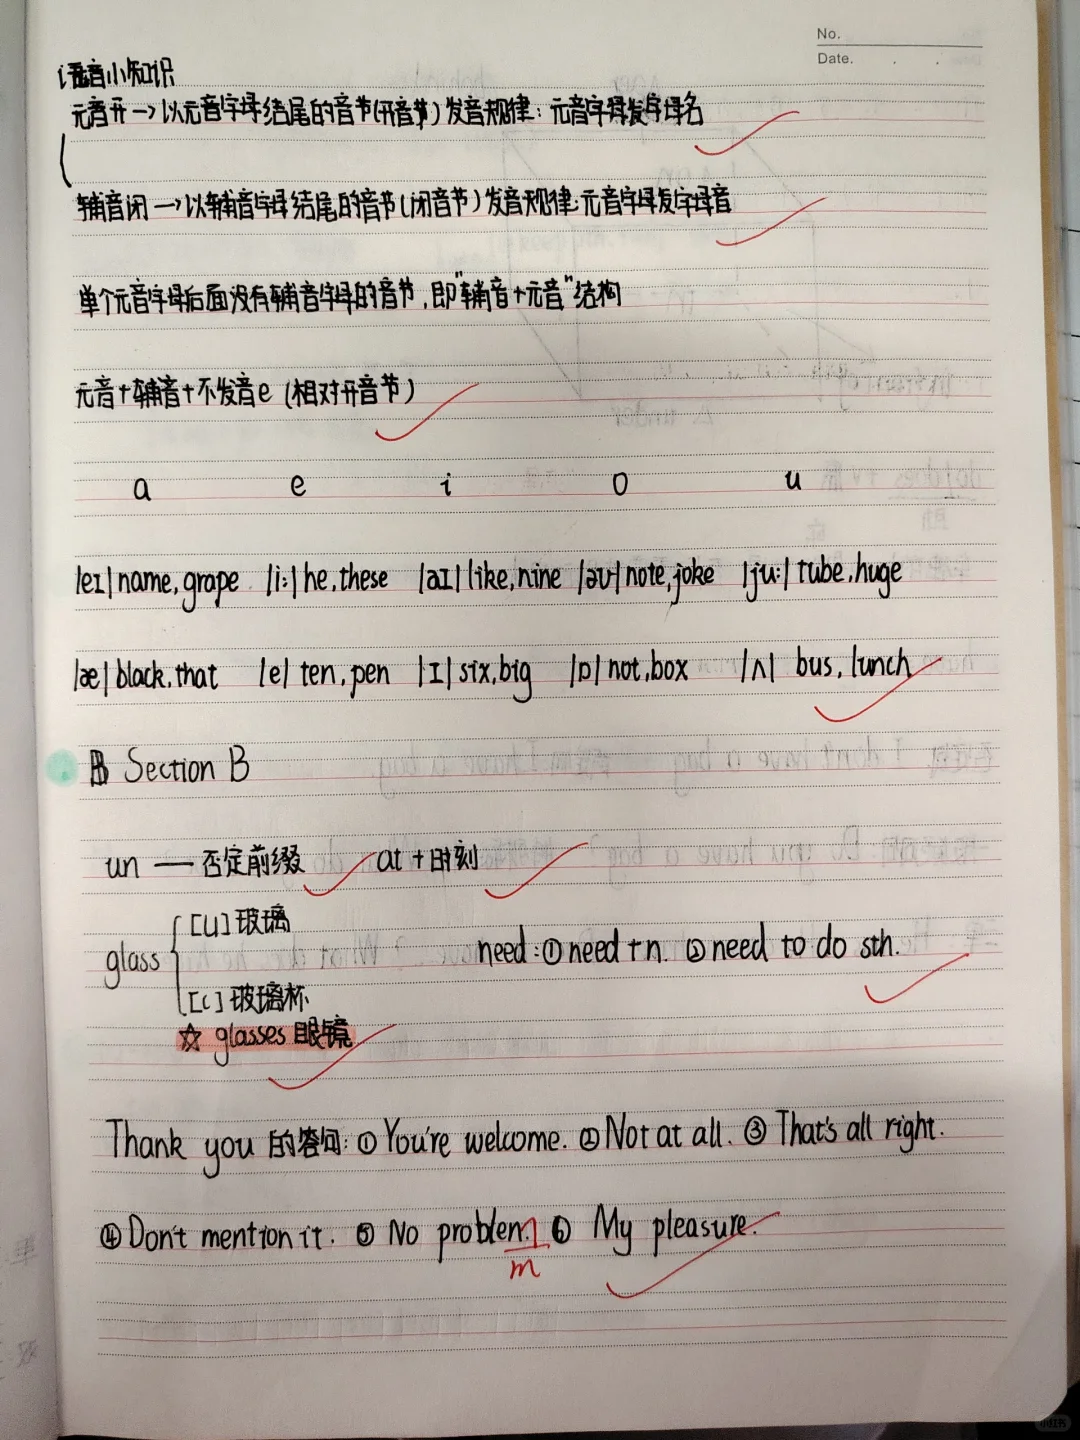 No.
Date.
语音小知识
元音开→以元音字母结尾的音节(开音节)发音规律:元音字母发字母名
辅音闭→以辅音字母结尾的音节(闭音节)发音规律:元音字母发字母音
单个元音字母后面没有辅音字母的音节,即"辅音+元音"结构
元音+辅音+不发音e(相对开音节)
a e i o u
|eɪ| name, grape |i:| he, these |aɪ| like, nine |əʊ| note, joke |ju:| tube, huge
|æ| black, that |e| ten, pen |ɪ| six, big |ɒ| not, box |ʌ| bus, lunch
Section B
un — 否定前缀 at + 时刻
[U] 玻璃
glass need: ① need + n. ② need to do sth.
[C] 玻璃杯
☆ glasses 眼镜
Thank you 的答句: ① You're welcome. ② Not at all. ③ That's all right.
④ Don't mention it. ⑤ No problen. ⑥ My pleasure.
m